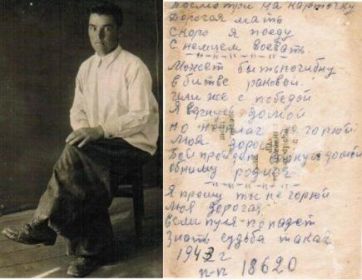 Посмотри на карточку
Дорогая мать
Скоро я поеду
С немцем воевать
Может быть погибну
в битве раковой
или же с победой
Я вернусь домой
но не плач не горюй
Моя дорогая
Бой пройдет вернусь домой
обниму родная
Я прошу ты не горюй
Моя дорогая
если пуля попадет
знать судьба такая
1943 г
п-п 18620